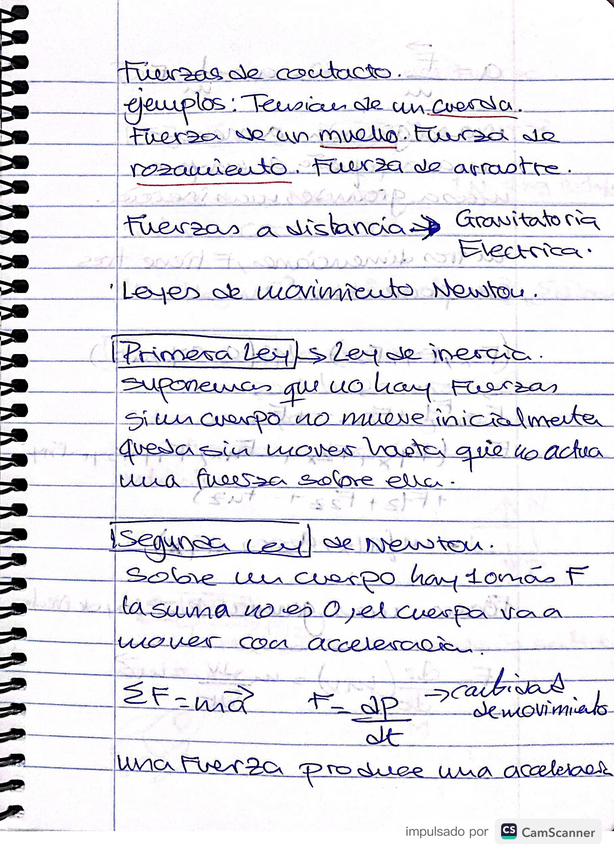 Fuerzas de contacto.
ejemplos: Tension de un cuerda.
Fuerza de un muello. Fuerza de
rozamiento. Fuerza de arrastre.
Fuerzas a distancia → Gravitatoria
Electrica.
Leyes de movimiento Newton.
Primera Ley → Ley de inercia.
suponemos que no hay Fuerzas
si un cuerpo no mueve inicialmente
queda sin mover hasta que no actua
una fuerza sobre ella.
Segunda Ley de Newton.
Sobre un cuerpo hay 1 o más F
la suma no es 0, el cuerpo va a
mover con acceleracion.
ΣF = ma⃗ F = dP/dt → cantidad
de movimiento
una Fuerza produce una acceleracion
impulsado por CS CamScanner